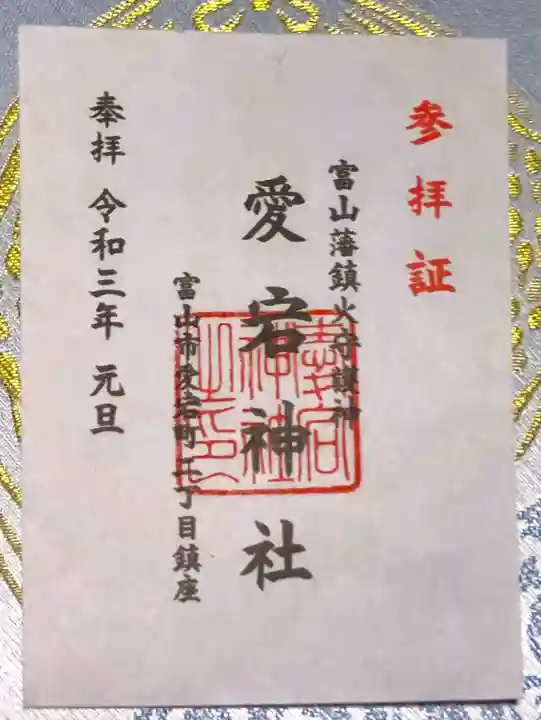 参拝証
富山藩鎮火守護神
愛宕神社
愛宕神社之印
富山市愛宕町二丁目鎮座
奉拝 令和三年 元旦